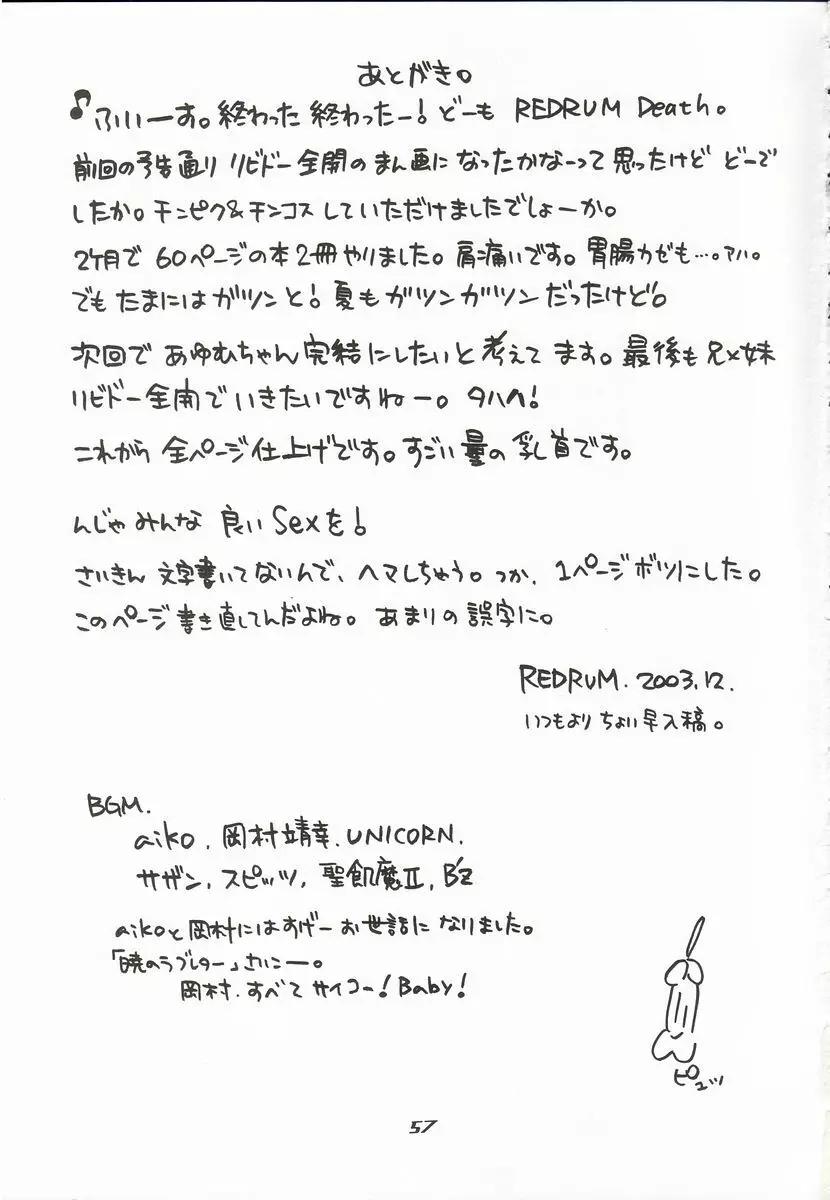 あとがき。
♪ふいーす。終わった 終わったー! どーも REDRUM Death。
前回の予告通り リビドー全開の まん画に なったかなーって 思ったけど どーで
したか。チンピク&チンコス していただけましたでしょーか。
2ケ月で 60ページの本 2冊やりました。肩痛いです。胃腸カゼも…。アハ。
でも たまには ガツンと! 夏も ガツン ガツン だったけど。
次回で あゆむちゃん 完結にしたいと 考えて ます。最後も 兄×妹
リビドー全開で いきたいですねー。タハハ!
これから 全ページ仕上げです。すごい 量の 乳首です。
んじゃ みんな 良い Sexを!
さいきん 文字書いてないんで、ヘマしちゃう。つか、1ページボツにした。
このページ 書き直してんだよね。あまりの 誤字に。
REDRUM. 2003.12.
いつもより ちょい早入稿。
BGM.
aiko. 岡村靖幸. UNICORN.
サザン, スピッツ, 聖飢魔Ⅱ, B'z
aikoと岡村にはすげー お世話に なりました。
「暁のラブレター」さいこー。
岡村. すべて サイコー! Baby!
ピュッ
57